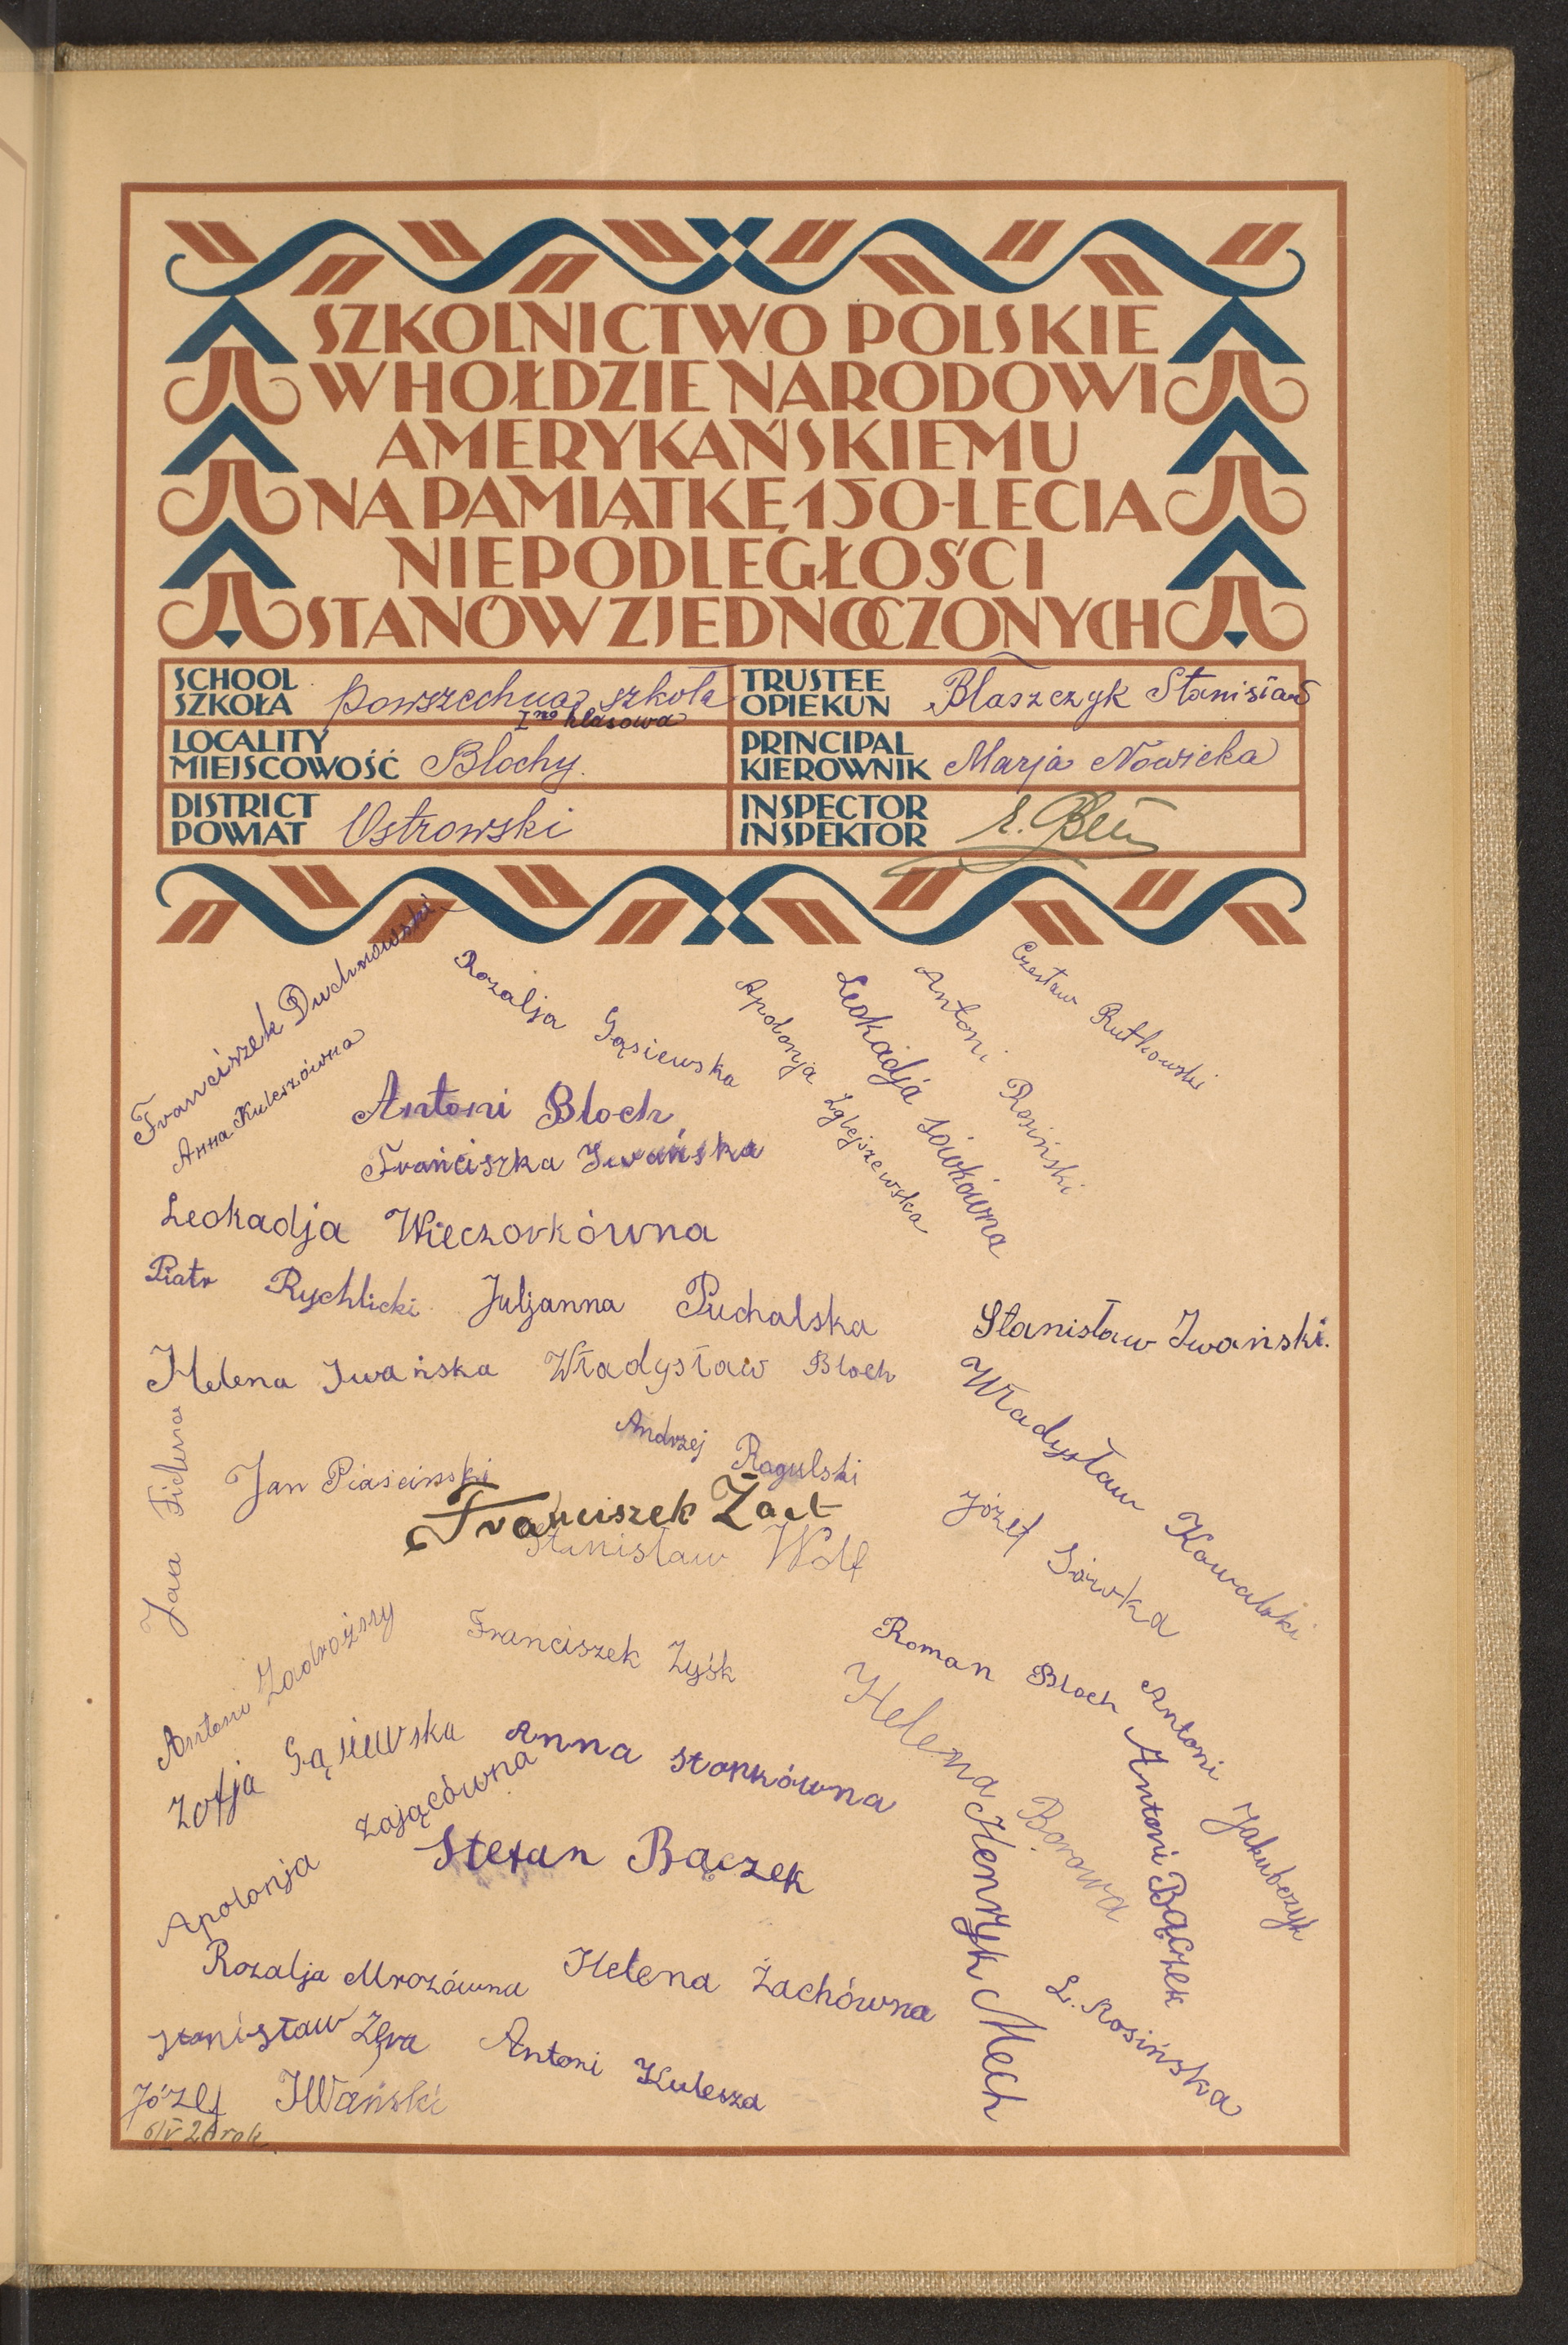 SZKOLNICTWO POLSKIE
W HOŁDZIE NARODOWI
AMERYKAŃSKIEMU
NA PAMIĄTKĘ 150-LECIA
NIEPODLEGŁOŚCI
STANÓW ZJEDNOCZONYCH
SCHOOL
SZKOŁA
powszechna szkoła
I no klasowa
TRUSTEE
OPIEKUN
Błaszczyk Stanisław
LOCALITY
MIEJSCOWOŚĆ
Blochy.
PRINCIPAL
KIEROWNIK
Marja Nowicka
DISTRICT
POWIAT
Ostrowski
INSPECTOR
INSPEKTOR
Franciszek Duchnowski
Anna Kuleszówna
Rozalja Gąsiewska
Apolonja Zglejszewska
Leokadja Sówkówna
Antoni Rosiński
Czesław Rutkowski
Antoni Bloch
Franciszka Iwańska
Leokadja Wieczorkówna
Piotr Rychlicki
Juljanna Puchalska
Stanisław Iwański.
Helena Iwańska
Władysław Bloch
Władysław Kowalski
Andrzej Rogulski
Jan
Jan Piaściński
Franciszek
Stanisław Wolf
Józef Sówka
Antoni Zadrożny
Franciszek Zyśk
Roman Bloch
Helena Borowa
Antoni Jakubczyk
Antoni Bączek
Zofja Gąsiewska
Anna
Apolonja Zającówna
Stefan Bączek
Henryk Mech
Rozalja Mrozówna
Helena Żachówna
L. Rosińska
Stanisław
Antoni Kulesza
Józef Iwański
6/V 26 rok.